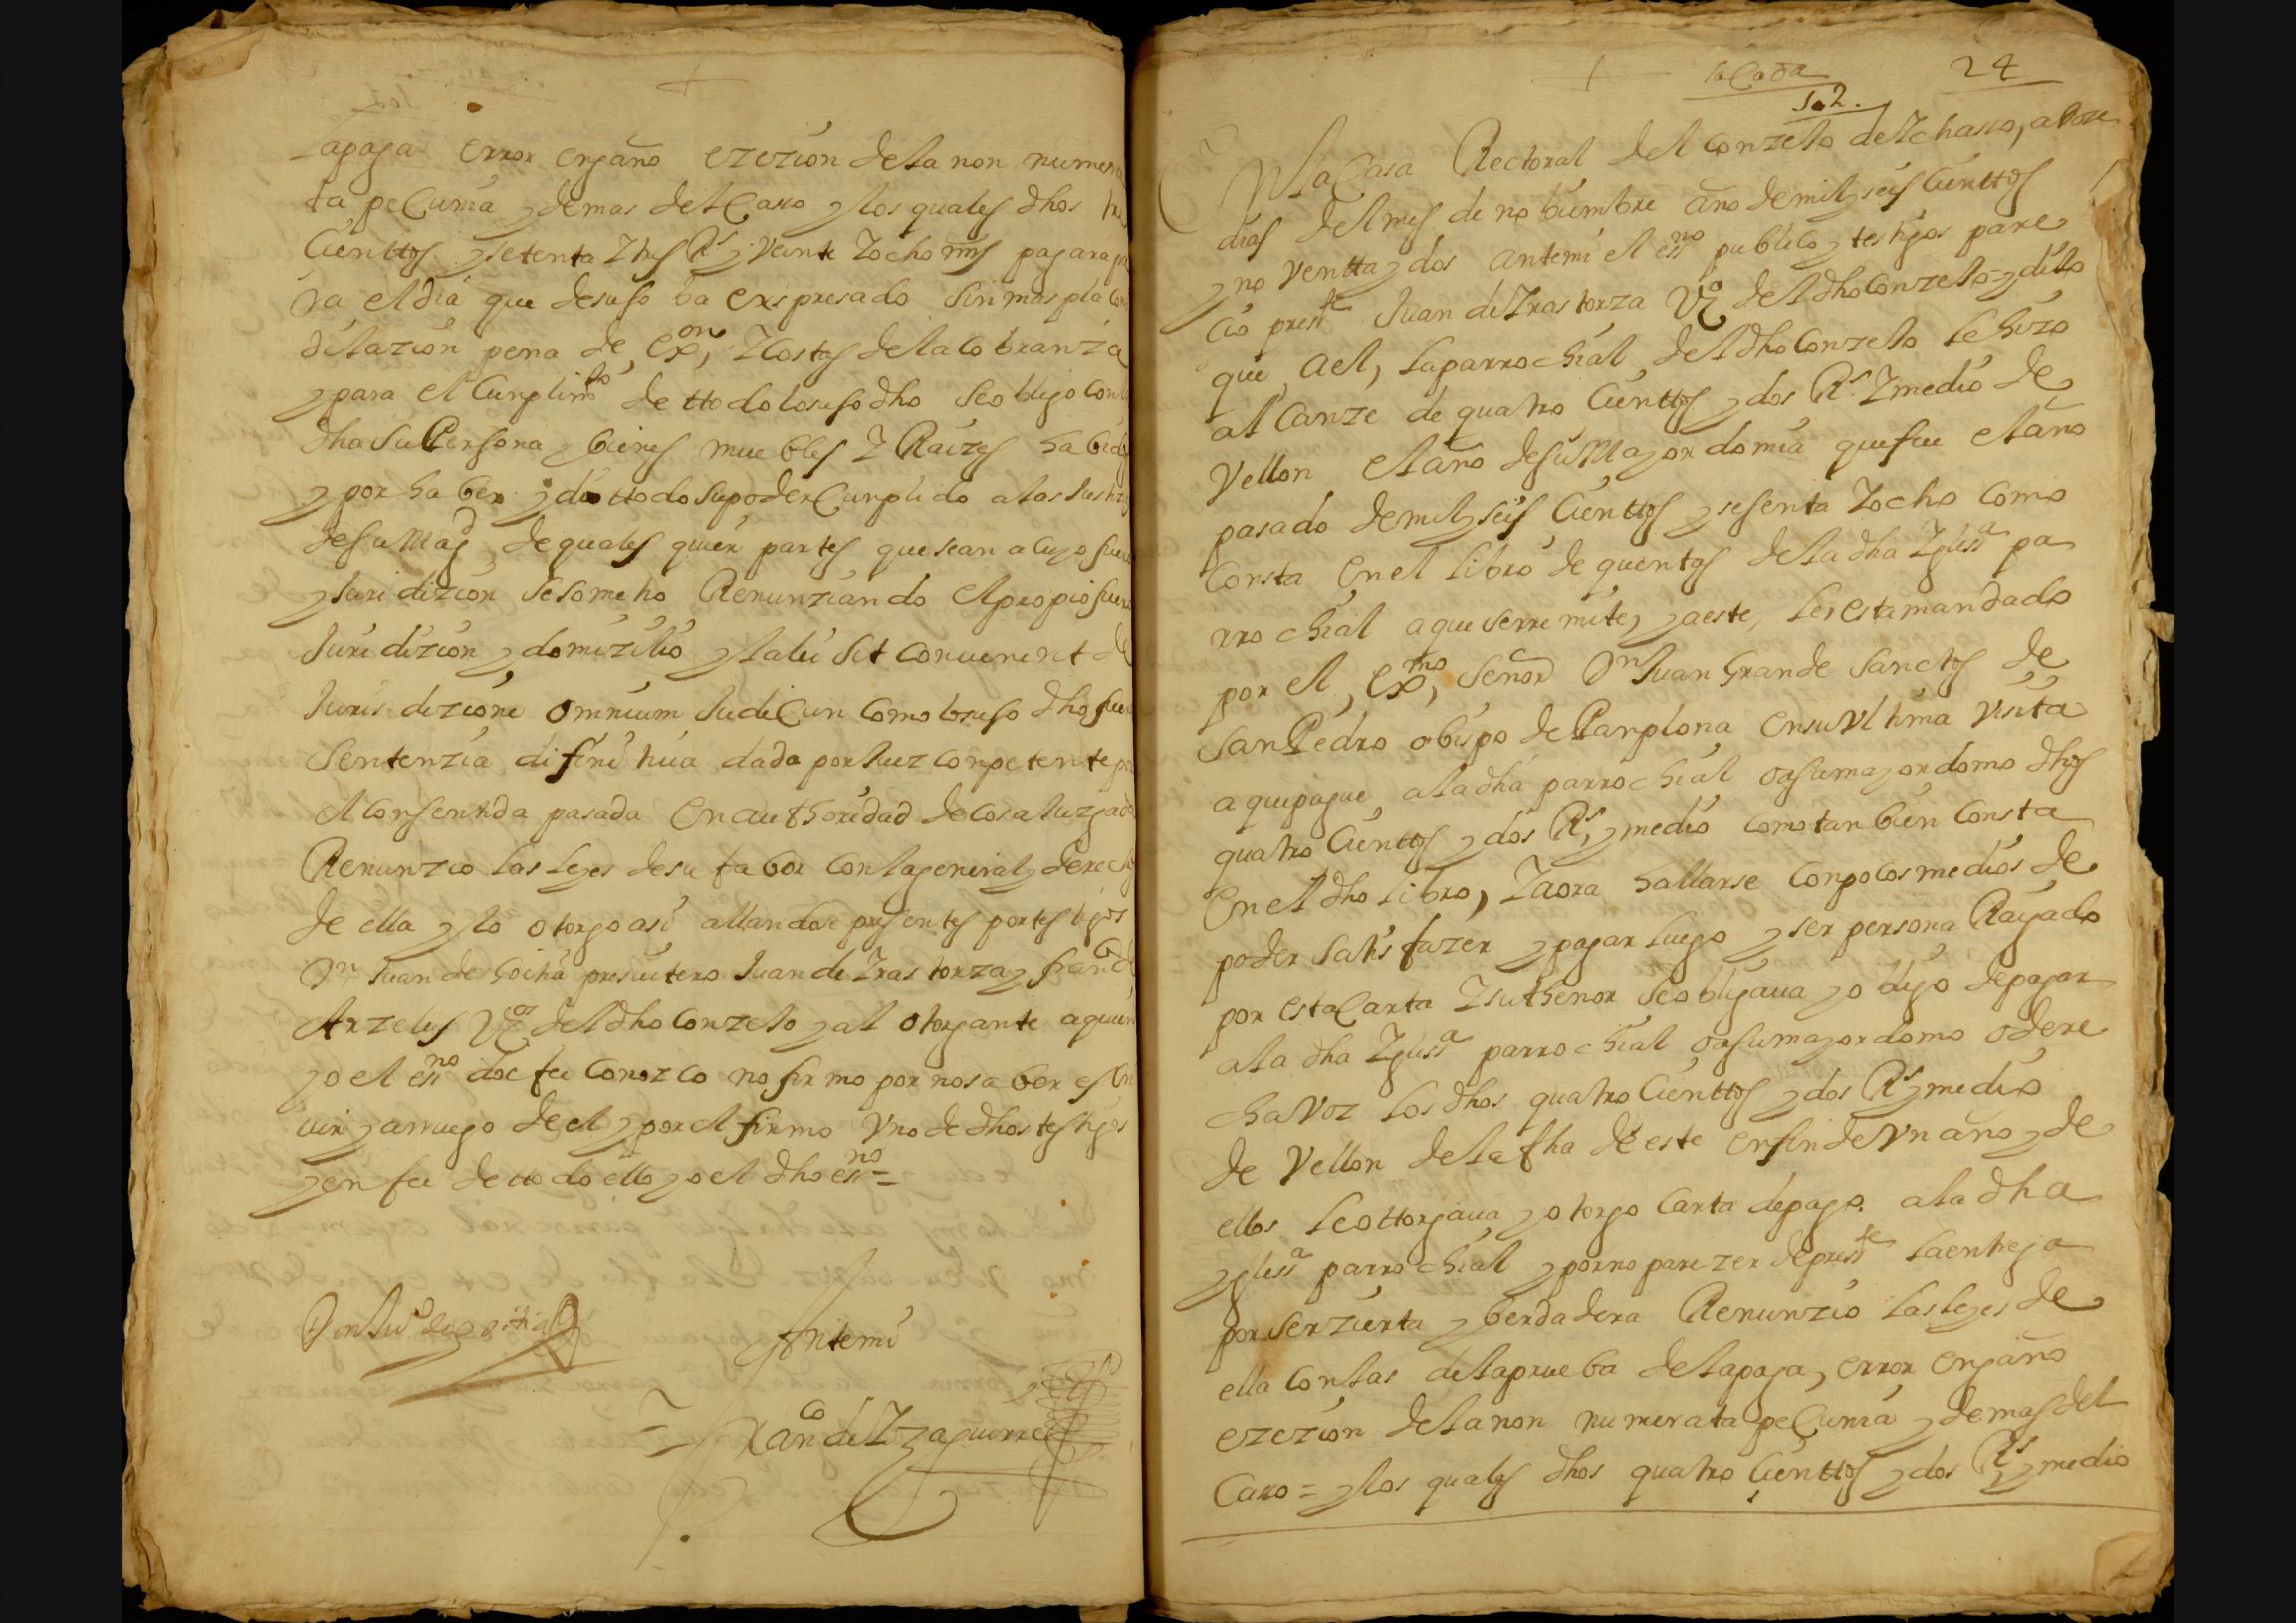 la paga error engaño ezezion de la non numera
ta pecunia y demas del Caso y los quales dhos tre
cienttos y setenta y tres Rs y veinte y ocho mrs pagara pa
ra el dia que de suso ba expresado sin mas plazo ni
dilazion pena de exon, y Costas de la cobranza
y para el Cunplimto de ttodo lo suso dho se obligo con la
dha su Persona y bienes muebles y Raizes habidos
y por haber y dio ttodo su poder Cunplido a las Justizias
de su Magd de quales quier partes que sean a cuyo fuero
y Juridizion se sometio Renunziando el propio fuero
Juridizion y domizilio y la lei sit convenerit de
Jurisdizione omnium Judicun como lo suso dho fuera
Sentenzia difinitiua dada por Juez conpetente por
el consentida pasada en authoridad de cosa Juzgada
Renunzio las leyes de su fabor con la general y derechos
de ella y lo otorgo asi allandose presentes por testigos
Dn Juan de Goitia presuitero Juan de Yrastorza y franco de
Arzelus Vos del dho Conzejo y al otorgante a quien
yo el essno doi fee Conozco no firmo por no saber escri
uir y a rruego de el y por el firmo Vno de dhos testigos
y en fee de ttodo ello yo el dho essno =
Don Juo de goitia
Ante mi
Franco de Yzaguirre
+
sacada
24
S. 2.
En la Casa Rectoral del Conzejo de Ychasso, a doze
dias del mes de nobiembre año de mil y seis cienttos
y noventta y dos ante mi el essno publico y testigos pare
cio preste Juan de Yrastorza Vo del dho Conzejo = y dijo
que a el, la parrochial del dho Conzejo le hizo
alcanze de quatro Cienttos y dos Rs y medio de
Vellon el año de su Mayordomia que fue el año
pasado de mil y seis Cienttos y sesenta y ocho como
Consta en el libro de quentas de la dha Yglessa pa
rrochial a que se rremite, y a este, le esta mandado
por el, Exmo, Señor Dn Juan Grande Sanctos de
San Pedro obispo de Panplona en su Vltima Visita
a que pague a la dha parrochial o a su mayordomo dhos
quatro Cienttos y dos Rs, y medio como tanbien Consta
en el dho libro, y aora hallarse con pocos medios de
poder satisfazer y pagar luego y ser persona Raygado
por esta Carta y su thenor se obligaua y obligo de pagar
a la dha Yglessa parrochial o a su mayordomo o dere
cha Voz los dhos quatro Cienttos y dos Rs y medio
de Vellon de la fha de este en fin de Vn año y de
ellos le ottorgaua y otorgo Carta de pago a la dha
yglessa parrochial y por no parezer de presste la entrega
por ser zierta y berdadera Renunzio las leyes de
ella con las de la prueba de la paga, error engaño
ezezion de la non numerata pecunia y demas del
Caso = y los quales dhos quatro Cienttos y dos Rs y medio